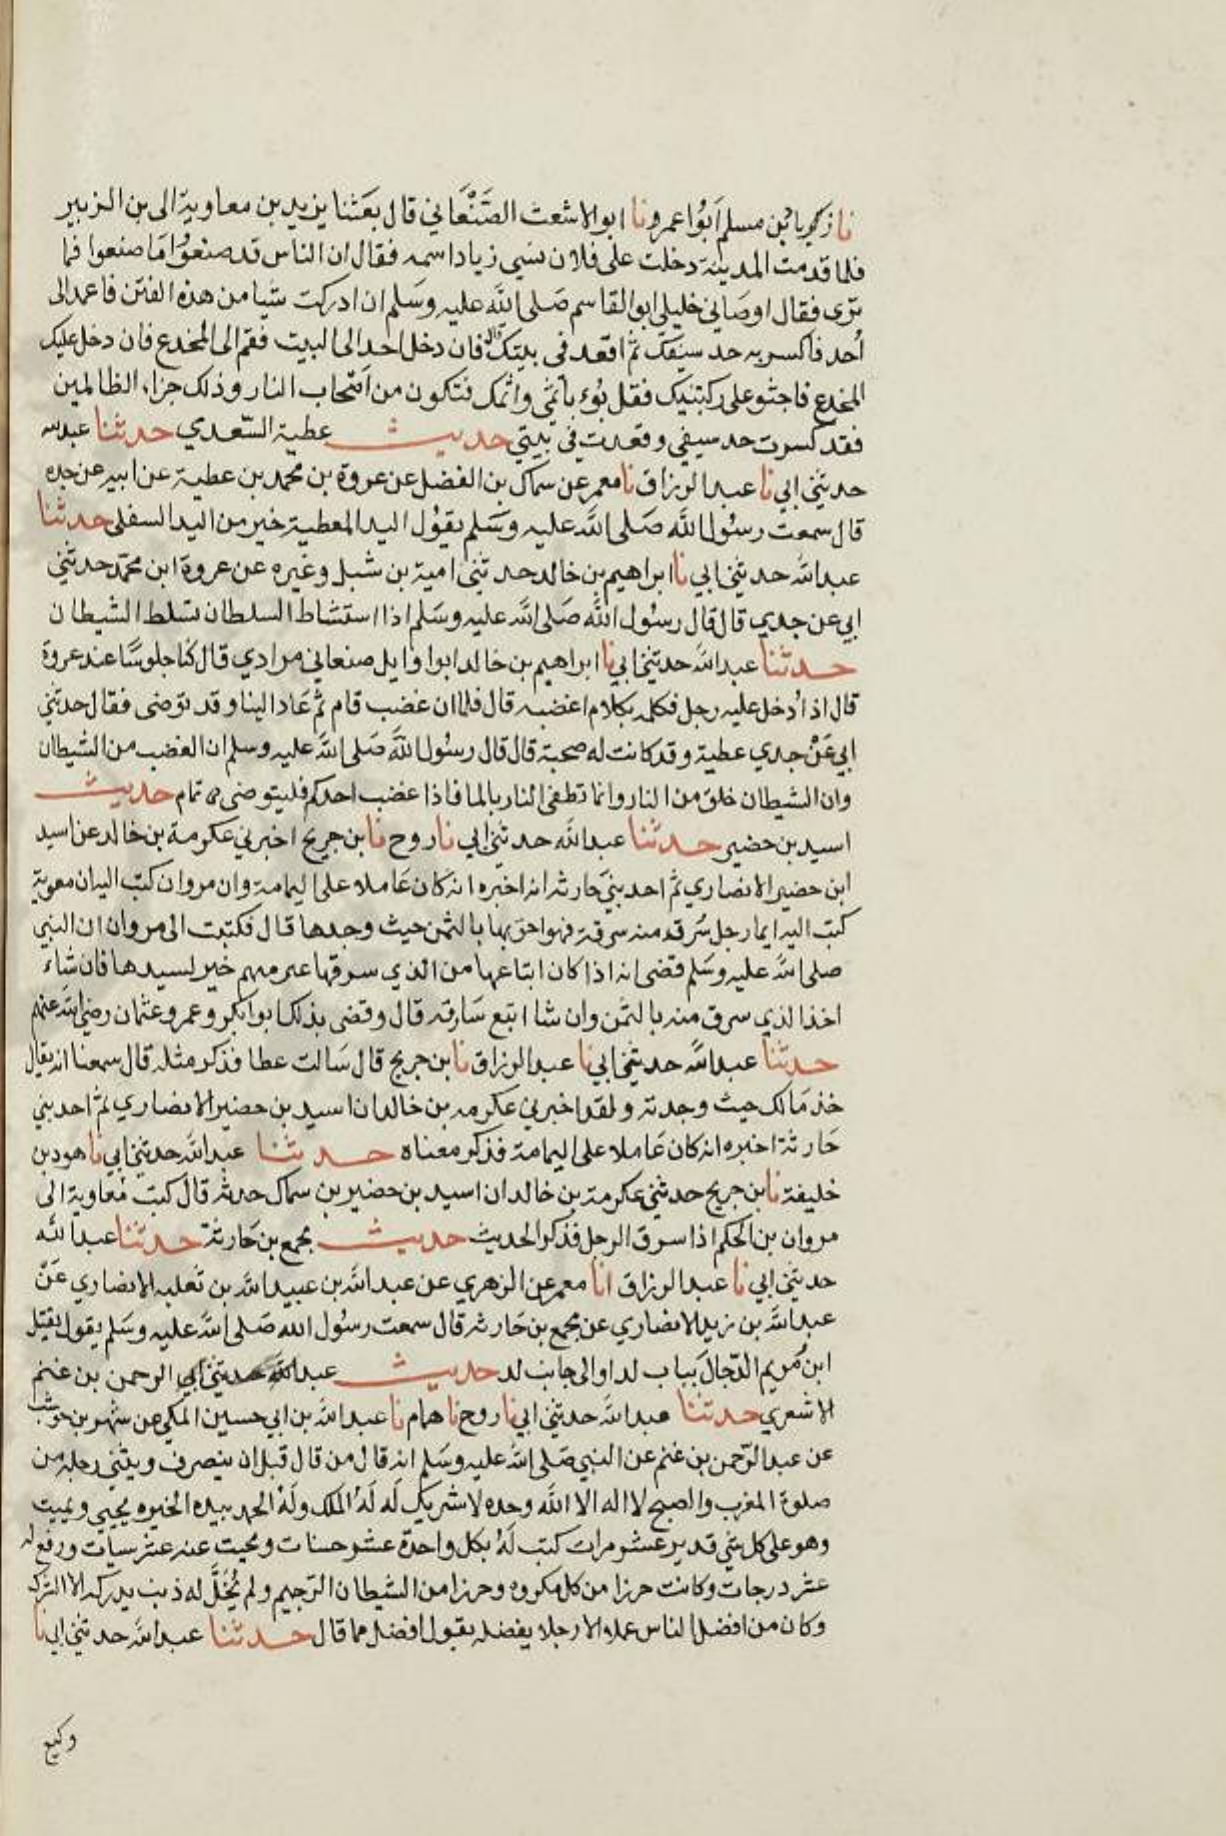 نا زكريا بن مسلم أبوا عمرو نا ابو الاشعث الصَّنْعَاني قال بعَثنا يزيد بن معاوية الى بن الزبير
فلما قدمت المدينة دخلت على فلان نسي زياد اسمه فقال ان الناس قد صنعوُا مَا صنعوا فما
ترى فقال اوصَاني خليلي ابو القاسم صَلى اللَّه عليه وسَلم ان ادركت شيا من هذه الفتن فاعمد الى
أحد فاكسر به حد سيفك ثم اقعد في بيتك قال فان دخل احد الى البيت فقم الى المخدع فان دخل عليك
المخدع فاجثو على ركبتيك فقل بُوء بأثمي واثمك فتكون من اصحاب النار وذلك جزاء الظالمين
فقد كسرت حد سيفي وقعدت في بيتي حديث عطية السّعدي حدثنا عبد الله
حدثني ابي نا عبد الرزاق نا معمر عن سماك بن الفضل عن عروة بن محمد بن عطية عن ابيه عن جده
قال سمعت رسُول اللَّه صَلى اللَّه عليه وسَلم يقوُل اليد المعطية خير من اليد السفلى حدثنا
عبد اللَّه حدثني ابي نا ابراهيم بن خالد حدثني امية بن شبل وغيره عن عروة ابن محمّد حدثني
ابي عن جدي قال قال رسُول اللَّه صَلى اللَّه عليه وسَلم اذا استشاط السلطان تسلط الشيطان
حدثنا عبد اللَّه حدثني ابي نا ابراهيم بن خالد ابوا وايل صنعاني مرادي قال كنا جلوسًا عند عروة
قال اذ اُدخل عليه رجل فكلمه بكلام اغضبه قال فلما ان غضب قام ثمَّ عَاد الينا وقد توَضى فقال حدثني
ابي عَنْ جدي عطية وقد كانت له صحبة قال قال رسُول اللَّه صَلى اللَّه عليه وسلم ان الغضب من الشيطان
وان الشيطان خلق من النار وانما تطفى النار بالما فاذا غضب احدكم فليتوضى تمام حديث
اسيد بن حضير حدثنا عبد اللَّه حدثني ابي نا روح نا بن جريج اخبرني عكرمة بن خالد عن اسيد
ابن حضير الانصاري ثم احد بني حَارثه انه اخبره انه كان عَاملا على اليمامة وان مروان كتب اليه ان معوية
كتب اليه ايما رجل سُرق منه سرقة فهوا حق بها بالثمن حيث وجدها قال فكتبت الى مروان ان النبي
صلى اللَّه عليه وسَلم قضى انه اذا كان ابتاعها من الذي سرقها غير متهم خير لسيدها فان شاء
اخذ الذي سرق منه بالثمن وان شا اتبع سَارقه قال وقضى بذلك ابوا بكر وعمر وعثمان رضي اللَّه عنهم
حدثنا عبد اللَّه حدثني ابي نا عبد الرزاق نا بن جريج قال سَالت عطا فذكر مثله قال سمعنا انه يقال
خذ مَالك حيث وجدته ولقد اخبرني عكرمه بن خالد ان اسيد بن حضير الانصاري ثم احد بني
حَارثة اخبره انه كان عَاملا على اليمامة فذكر معناه حدثنا عبد اللَّه حدثني ابي نا هود بن
خليفة نا بن جريج حدثني عكرمة بن خالد ان اسيد بن حضير بن سماك حدثه قال كتب مُعاوية الى
مروان بن الحكم اذا سرق الرجل فذكر الحديث حديث مجمع بن حَارثة حدثنا عبد اللَّه
حدثني ابي نا عبد الرزاق انا معمر عن الزهري عن عبد اللَّه بن عبيد اللَّه بن ثعلبه الانصاري عَنْ
عبد اللَّه بن زيد الانصاري عن مجمع بن حَارثه قال سمعت رسُول الله صَلى اللَّه عليه وسَلم يقول يقتل
ابن مُريم الدّجالَ بباب لد او الى جانب لد حديث عبد الرحمن بن غنم
الاشعري حدثنا عبد اللَّه حدثني ابي نا روح نا همام نا عبد اللَّه بن ابي حسين المكي عن شهر بن حوشب
عن عبد الرّحمن بن غنم عن النبي صَلى اللَّه عليه وسَلم انه قال من قال قبل ان ينصرف ويثني رجله من
صلوة المغرب والصبح لا اله الا اللَّه وحده لا شريك له لَهُ الملك ولَهُ الحمد بيده الخير يحيي ويميت
وهو على كل شي قدير عشر مرات كتب لَهُ بكل واحدة عشر حسنات ومحيت عنه عشر سيات ورفع له
عشر درجات وكانت حرزا من كل مكروه وحرزا من الشيطان الرّجيم ولم يُحَلَّ له ذنب يدركه الا الشرك
وكان من افضل الناس عملا الا رجلا يفضله يقول افضل مما قال حدثنا عبد اللَّه حدثني ابي نا
وكيع